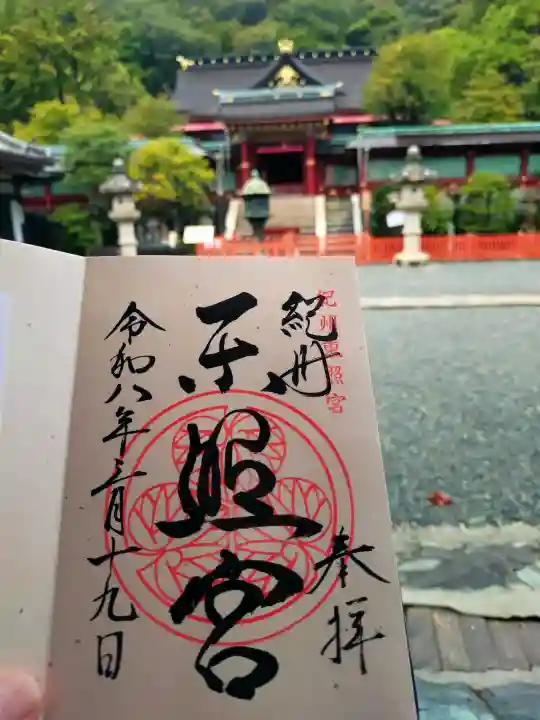 紀州
紀州東照宮
奉拝
東照宮
令和八年三月十九日